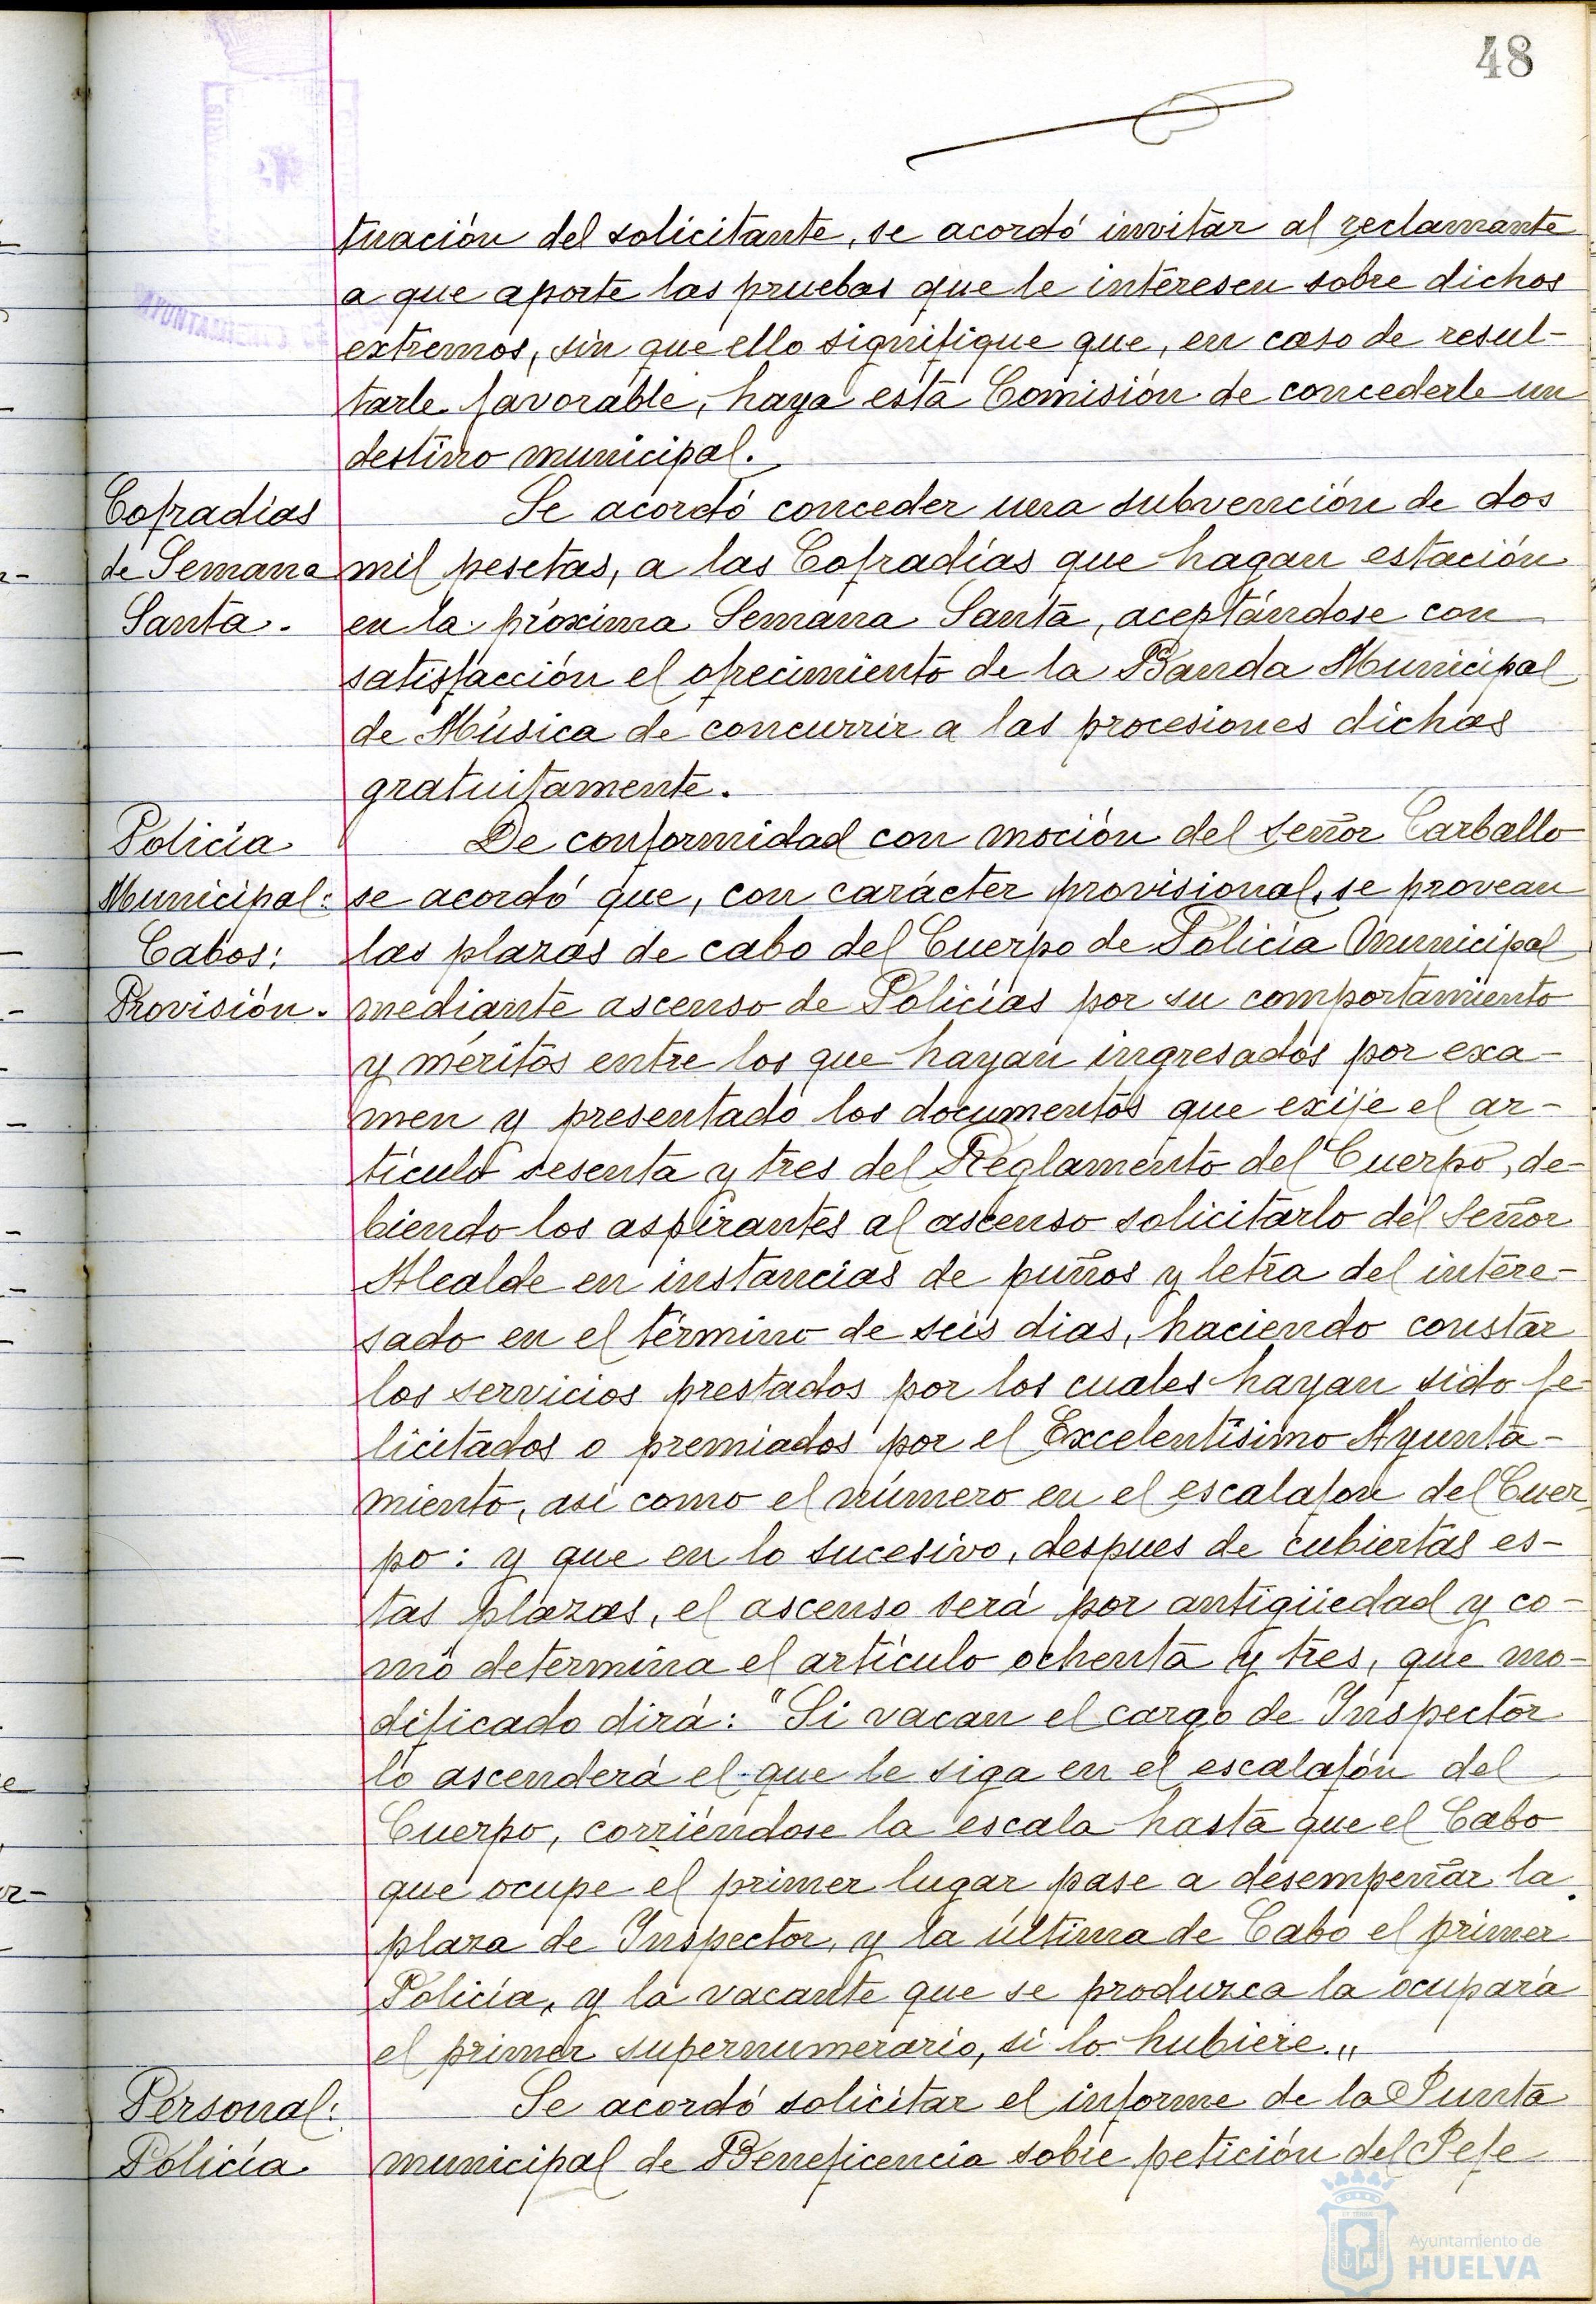 48
tuación del solicitante, se acordó invitar al reclamante
a que aporte las pruebas que le interesen sobre dichos
AYUNTAMIENTO DE
extremos, sin que ello signifique que, en caso de resul-
tarle favorable, haya esta Comisión de concederle un
destino municipal.
Cofradías
de Semana
Santa.
Se acordó conceder una subvención de dos
mil pesetas, a las Cofradías que hagan estación
en la próxima Semana Santa, aceptándose con
satisfacción el ofrecimiento de la Banda Municipal
de Música de concurrir a las procesiones dichas
gratuitamente.
Policía
Municipal:
Cabos:
Provisión.
De conformidad con moción del señor Carballo
se acordó que, con carácter provisional, se provean
las plazas de cabo del Cuerpo de Policía Municipal
mediante ascenso de Policías por su comportamiento
y méritos entre los que hayan ingresados por exa-
men y presentado los documentos que exije el ar-
tículo sesenta y tres del Reglamento del Cuerpo, de-
biendo los aspirantes al ascenso solicitarlo del Señor
Alcalde en instancias de puños y letra del intere-
sado en el término de seis dias, haciendo constar
los servicios prestados por los cuales hayan sido fe-
licitados o premiados por el Excelentísimo Ayunta-
miento, asi como el número en el escalafon del Cuer-
po: y que en lo sucesivo, despues de cubiertas es-
tas plazas, el ascenso será por antigüedad y co-
mo determina el artículo ochenta y tres, que mo-
dificado dirá: "Si vacan el cargo de Inspector
lo ascenderá el que le siga en el escalafón del
Cuerpo, corriéndose la escala hasta que el Cabo
que ocupe el primer lugar pase a desempeñar la
plaza de Inspector, y la última de Cabo el primer
Policía, y la vacante que se produzca la ocupará
el primer supernumerario, si lo hubiere."
Personal:
Policía
Se acordó solicitar el informe de la Junta
municipal de Beneficencia sobre petición del Jefe
Ayuntamiento de
HUELVA